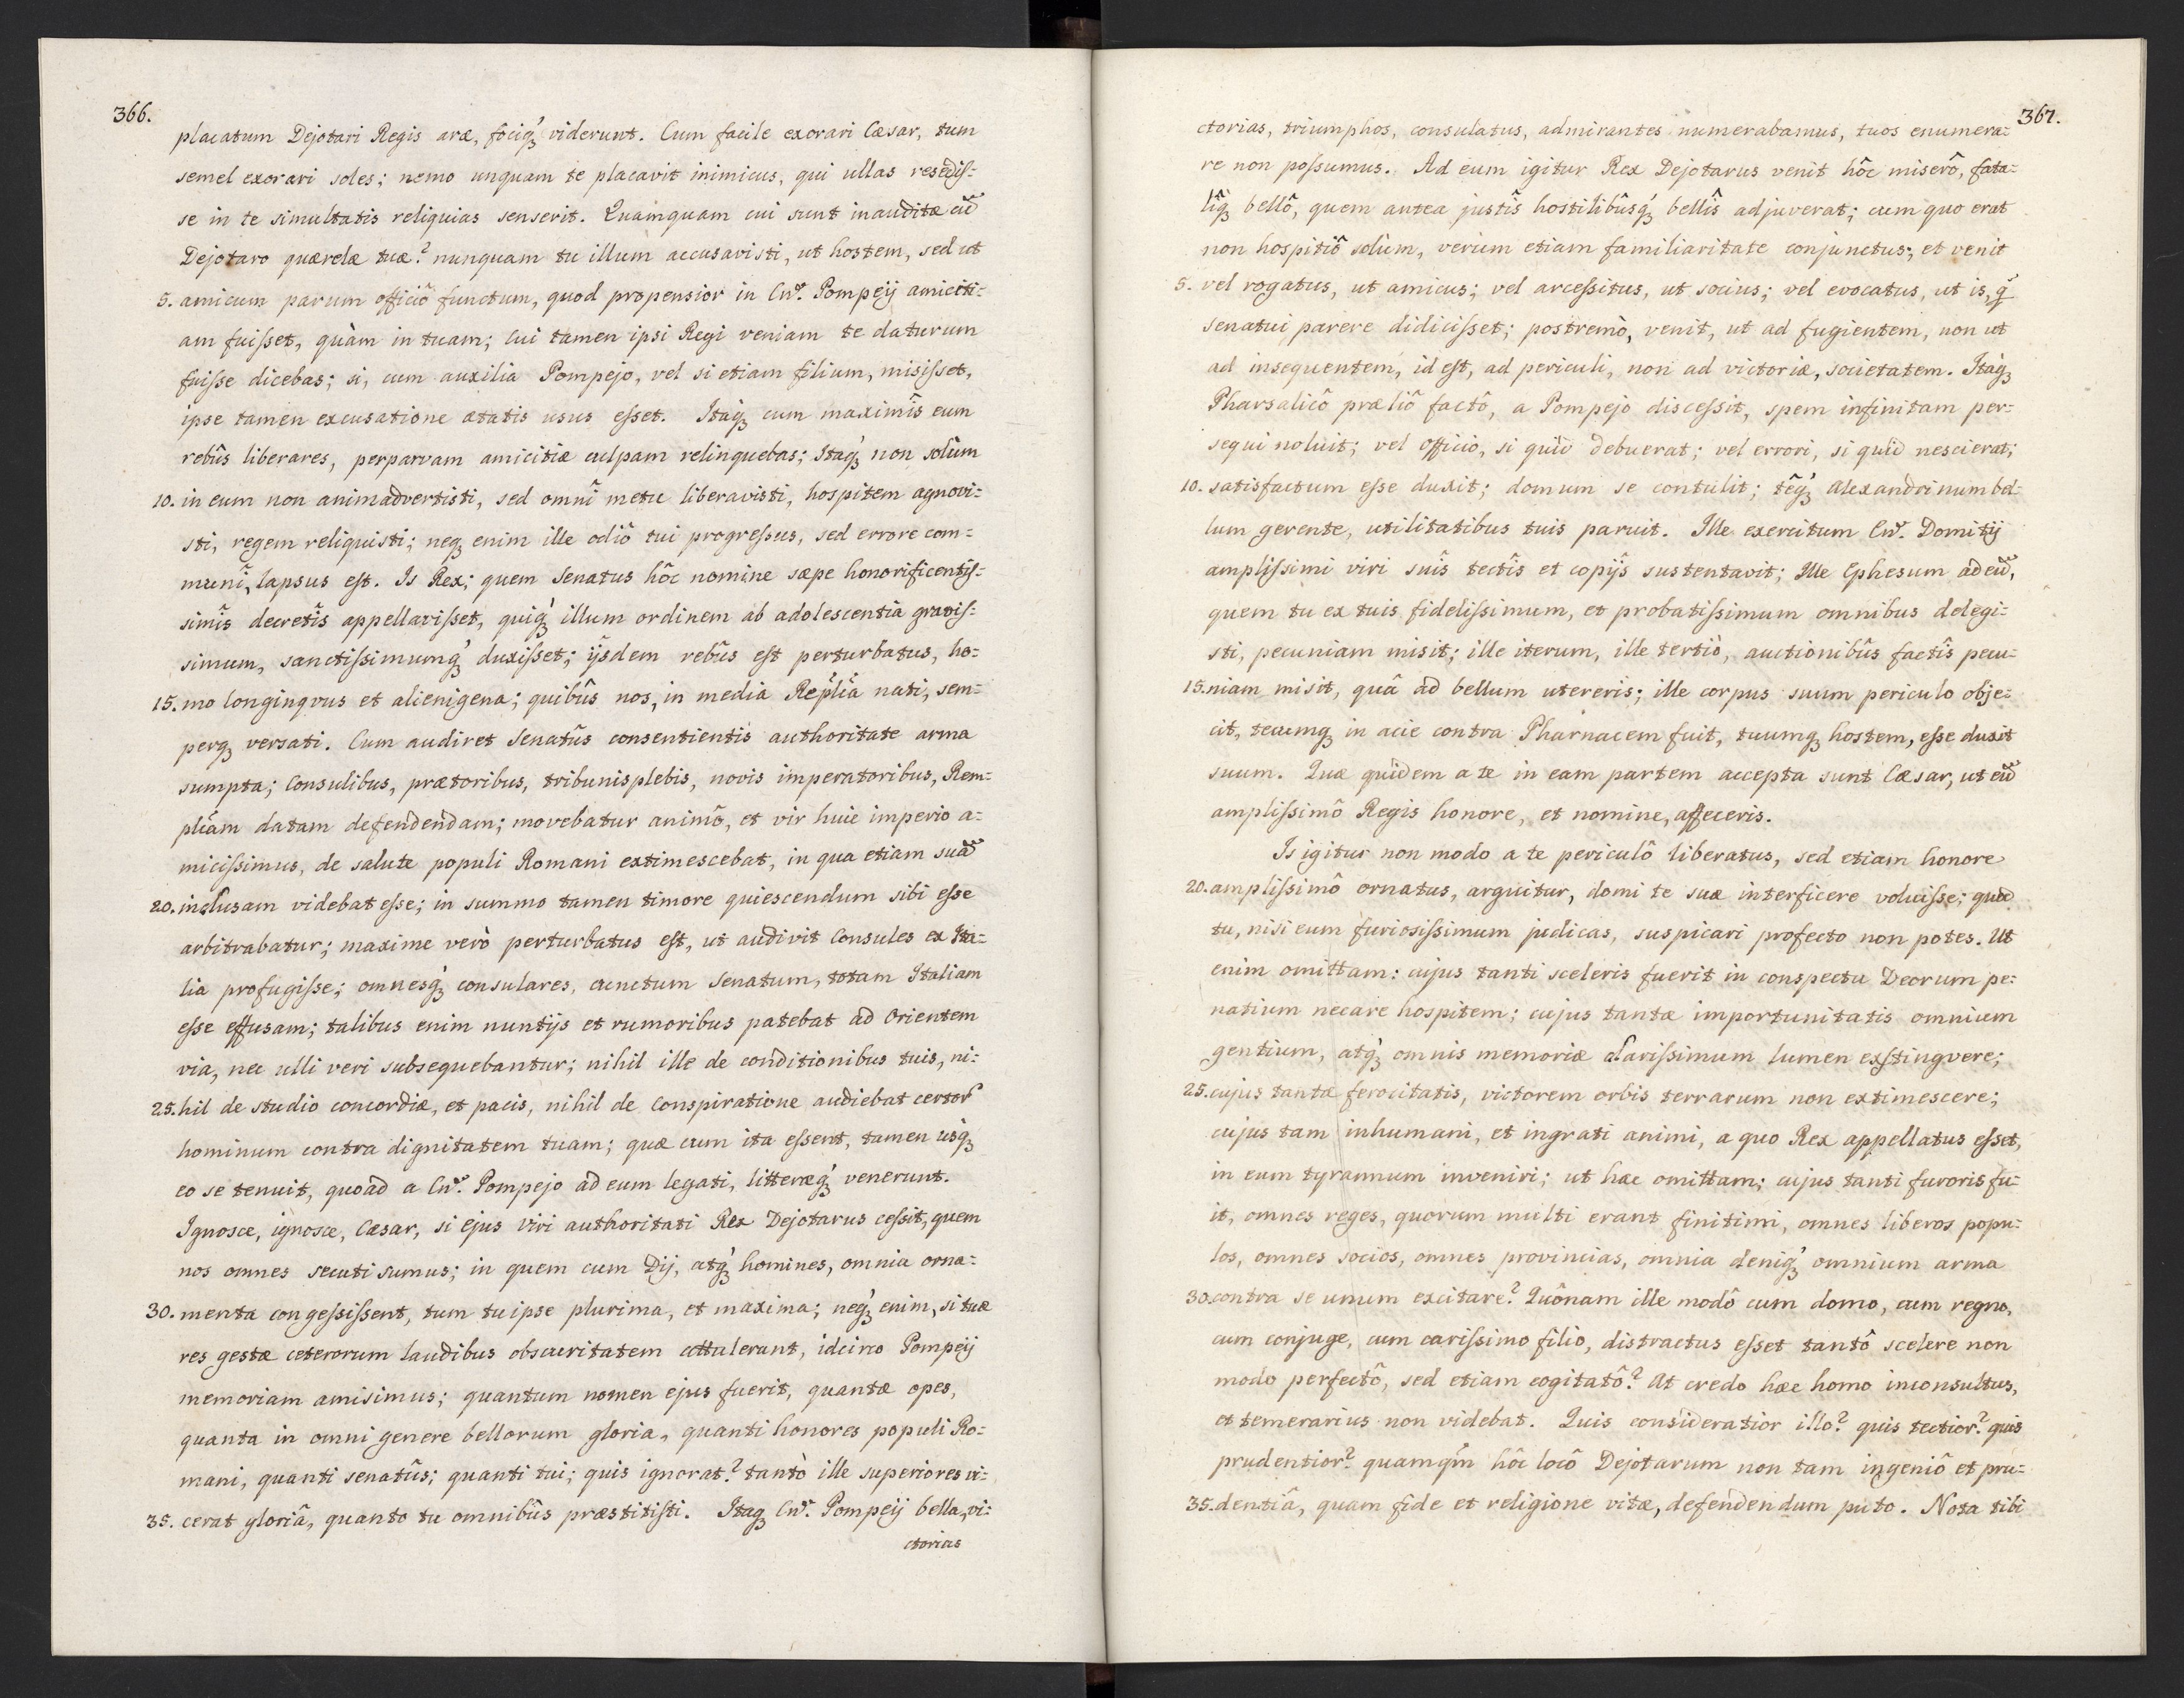 366.
placatum Dejotari Regis aræ, fôciq́ꝫ viderunt. Cum facile exorari Cæsar, tum
semel exorari soles; nemo unquam te placavit inimicus, qui ullas resediſ=
se in te simultatis reliquias senserit. Quamquam cui sunt inauditæ cũ
Dejotaro quærelæ tuæ? nunquam tu illum accusavisti, ut hostem, sed ut
5. amicum parum officiô functum, quod propensior in Cnᵐ. Pompeÿ amiciti=
am fuiſset, quàm in tuam; cui tamen ipsi Regi veniam te daturum
fuiſse dicebas; si, cum auxilia Pompejo, vel si etiam filium, misiſset,
ipse tamen excusatione ætatis usus eſset. Itaq́ꝫ cum maximîs eum
rebûs liberares, perparvam amicitiæ culpam relinquebas; Itaq́ꝫ non solùm
10. in eum non animadvertisti, sed omnî metu liberavisti, hospitem agnovi=
sti, regem reliquisti; neqꝫ enim ille odiô tui progreſsus, sed errore com=
munî, lapsus eſt. Is Rex; quem Senatus hôc nomine sæpe honorificentiſ=
simîs decretîs appellaviſset, quiq́ꝫ illum ordinem ab adolescentia graviſ=
simum, sanctiſsimumq́ꝫ duxiſset; ijsdem rebûs eſt perturbatus, ho=
15. mo longinqvus et alienigena; quibûs nos, in media Replîa nati, sem=
perqꝫ versati. Cum audiret Senatûs consentientis authoritate arma
sumpta; Consulibus, prætoribus, tribunisplebis, novis imperatoribus, Rem=
plîam datam defendendam; movebatur animô, et vir huic imperio a=
miciſsimus, de salute populi Romani extimescebat, in qua etiam suã
20. inclusam videbat eſse; in summo tamen timore quiescendum sibi eſse
arbitrabatur; maxime verò perturbatus eſt, ut audivit Consules ex Ita=
lia profugiſse; omnesq́ꝫ consulares, cunctum Senatum, totam Italiam
eſse effusam; talibus enim nuntijs et rumoribus patebat ad Orientem
via, nec ulli veri subsequebantur; nihil ille de conditionibus tuis, ni=
25. hil de studio concordiæ, et pacis, nihil de Conspiratione audiebat certoꝝ
hominum contra dignitatem tuam; quæ cum ita eſsent, tamen usq́ꝫ
eo se tenuit, quoad a Cnᵒ. Pompejo ad eum legati, litteræq́ꝫ venerunt.
Ignosce, ignosce, Cæsar, si ejus Viri authoritati Rex Dejotarus ceſsit, quem
nos omnes secuti sumus; in quem cum Dij, atq́ꝫ homines, omnia orna=
30. menta congeſsiſsent, tum tu ipse plurima, et maxima; neq́ꝫ enim, si tuæ
res gestæ ceterorum laudibus obscuritatem attulerunt, idcirco Pompeÿ
memoriam amisimus; quantum nomen ejus fuerit, quantæ opes,
quanta in omni genere bellorum gloria, quanti honores populi Ro=
mani, quanti senatûs; quanti tui; quis ignorat? tantò ille superiores vi=
35. cerat gloriâ, quanto tu omnibûs præstitiſti. Itaqꝫ Cnᵐ. Pompeÿ bella, vi=
ctorias
367.
ctorias, triumphos, consulatus, admirantes numerabamus, tuos enumera=
re non poſsumus. Ad eum igitur Rex Dejotarus venit hôc miserô, fata=
lîq́ꝫ bellô, quem antea justîs hostilibûsq́ꝫ bellîs adjuverat; cum quo erat
non hospitiô solùm, verùm etiam familiaritate conjunctus; et venit
5. vel rogatus, ut amicus; vel arceſsitus, ut socius; vel evocatus, ut is, q̃
senatui parere didiciſset; postremò, venit, ut ad fugientem, non ut
ad insequentem, id eſt, ad periculi, non ad victoriæ, societatem. Itaq́ꝫ
Pharsalicô præliô factô, a Pompejo disceſsit, spem infinitam per=
sequi noluit; vel officio, si quid debuerat; vel errori, si quid nescierat;
10. satisfactum eſse duxit; domum se contulit; têq́ꝫ Alexandrinum bel=
lum gerente, utilitatibus tuis paruit. Ille exercitum Cnᵐ. Domitÿ
ampliſsimi viri suîs tectîs et copijs sustentavit; Ille Ephesum ad eũ,
quem tu ex tuis fideliſsimum, et probatiſsimum omnibus delegi=
sti, pecuniam misit; ille iterum, ille tertiò, auctionibûs factîs pecu=
15. niam misit, quâ ad bellum utereris; ille corpus suum periculo obje=
cit, tecumqꝫ in acie contra Pharnacem fuit, tuumqꝫ hostem, eſse duxit
suum. Quæ quidem a te in eam partem accepta sunt Cæsar, ut eũ
ampliſsimô Regis honore, et nomine, affeceris.
Is igitur non modo a te periculô liberatus, sed etiam honore
20. ampliſsimô ornatus, arguitur, domi te suæ interficere voluiſse; quod
tu, nisi eum furiosiſsimum judicas, suspicari profecto non potes. Ut
enim omittam: cujus tanti sceleris fuerit in conspectu Deorum pe=
natium necare hospitem; cujus tantæ importunitatis omnium
gentium, atq́ꝫ omnis memoriæ clariſsimum lumen exſtingvere;
25. cujus tantæ ferocitatis, victorem orbis terrarum non extimescere;
cujus tam inhumani, et ingrati animi, a quo Rex appellatus eſset,
in eum tyrannum inveniri; ut hæc omittam; cujus tanti furoris fu=
it, omnes reges, quorum multi erant finitimi, omnes liberos popu=
los, omnes socios, omnes provincias, omnia deniq́ꝫ omnium arma
30. contra se unum excitare? Quônam ille modô cum domo, cum regno,
cum conjuge, cum cariſsimo filio, distractus eſset tantô scelere non
modo perfectô, sed etiam cogitatô? At credo hæc homo inconsultus,
et temerarius non videbat. Quis consideratior illo? quis tectior? quis
prudentior? quamq̃m hôc locô Dejotarum non tam ingeniô et pru=
35. dentiâ, quam fide et religione vitæ, defendendum puto. Nota tibi